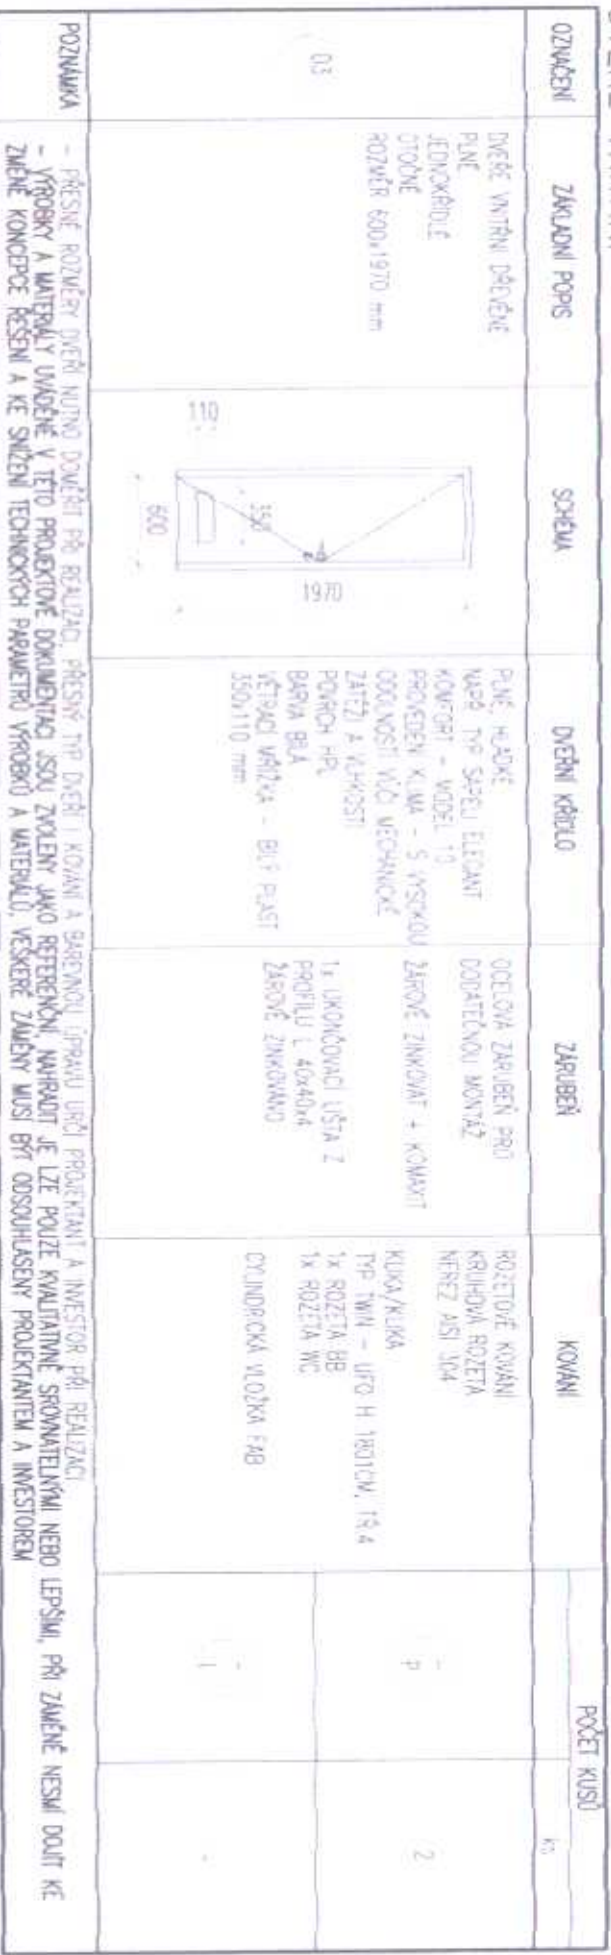 OZNAČENÍ
ZÁKLADNÍ POPIS
SCHÉMA
DVEŘNÍ KŘÍDLO
ZÁRUBEŇ
KOVÁNÍ
POČET KUSŮ
KS
03
DVEŘE VNITŘNÍ DŘEVĚNÉ
PLNÉ
JEDNOKŘÍDLÉ
OTOČNÉ
ROZMĚR 600x1970 mm
110
350
600
1970
PLNÉ HLADKÉ
NAPŘ. TYP SAPELI ELEGANT
KOMFORT - MODEL 10
PROVEDENÍ KLIMA - S VYSOKOU
ODOLNOSTÍ VŮČI MECHANICKÉ
ZÁTĚŽI A VLHKOSTI
POVRCH HPL
BARVA BÍLÁ
VĚTRACÍ MŘÍŽKA - BÍLÝ PLAST
350x110 mm
OCELOVÁ ZÁRUBEŇ PRO
DODATEČNOU MONTÁŽ
ŽÁROVĚ ZINKOVAT + KOMAXIT
1x UKONČOVACÍ LIŠTA Z
PROFILU L 40x40x4
ŽÁROVĚ ZINKOVÁNO
ROZETOVÉ KOVÁNÍ
KRUHOVÁ ROZETA
NEREZ AISI 304
KLIKA/KLIKA
TYP TWIN - UFO H 1801CM, TŘ.4
1x ROZETA BB
1x ROZETA WC
CYLINDRICKÁ VLOŽKA FAB
P
2
L
-
POZNÁMKA
- PŘESNÉ ROZMĚRY DVEŘÍ NUTNO DOMĚŘIT PŘI REALIZACI, PŘESNÝ TYP DVEŘÍ I KOVÁNÍ A BAREVNOU ÚPRAVU URČÍ PROJEKTANT A INVESTOR PŘI REALIZACI
- VÝROBKY A MATERIÁLY UVÁDĚNÉ V TÉTO PROJEKTOVÉ DOKUMENTACI JSOU ZVOLENY JAKO REFERENČNÍ, NAHRADIT JE LZE POUZE KVALITATIVNĚ SROVNATELNÝMI NEBO LEPŠÍMI, PŘI ZÁMĚNĚ NESMÍ DOJÍT KE
ZMĚNĚ KONCEPCE ŘEŠENÍ A KE SNÍŽENÍ TECHNICKÝCH PARAMETRŮ VÝROBKŮ A MATERIÁLŮ, VEŠKERÉ ZÁMĚNY MUSÍ BÝT ODSOUHLASENY PROJEKTANTEM A INVESTOREM